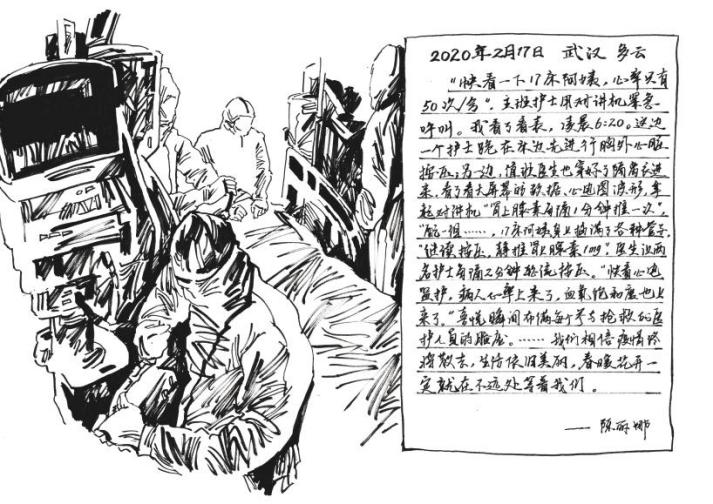 2020年2月17日 武汉 多云
"快看一下17床阿姨，心率只有
50次/分"。主班护士用对讲机紧急
呼叫。我看了看表，凌晨6:20。这边
一个护士跪在床边先进行胸外心脏
按压，另一边，值班医生也穿好了隔离衣进
来，看了看大屏幕的数据，心电图波形，拿
起对讲机"肾上腺素每隔1分钟推一次"，
17床阿姨身上插满了各种管子
"继续按压，静推肾上腺素1mg"，医生说两
名护士每隔2分钟轮流按压。"快看心电
监护，病人心率上来了，血氧饱和度也上
来了。"喜悦瞬间布满每个参与抢救的医
护人员的脸庞。……我们相信疫情终
将散去，生活依旧美丽，春暖花开一
定就在不远处等着我们。
—— 陈丽娜